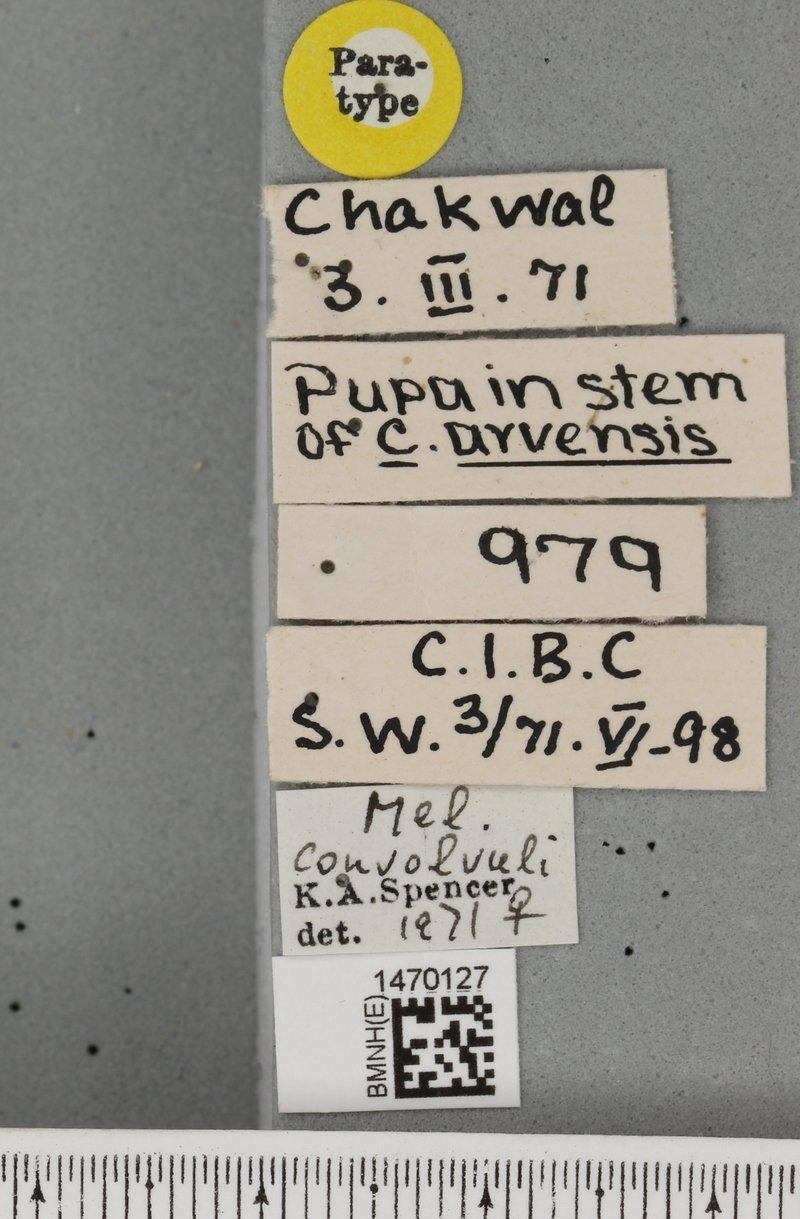 Para-
type
Chakwal
3. III. 71
Pupa in stem
of C. arvensis
979
C.I.B.C
S.W. 3/71. VI-98
Mel.
convolvuli
K.A.Spencer
det. 1971 ♀
1470127
BMNH(E)